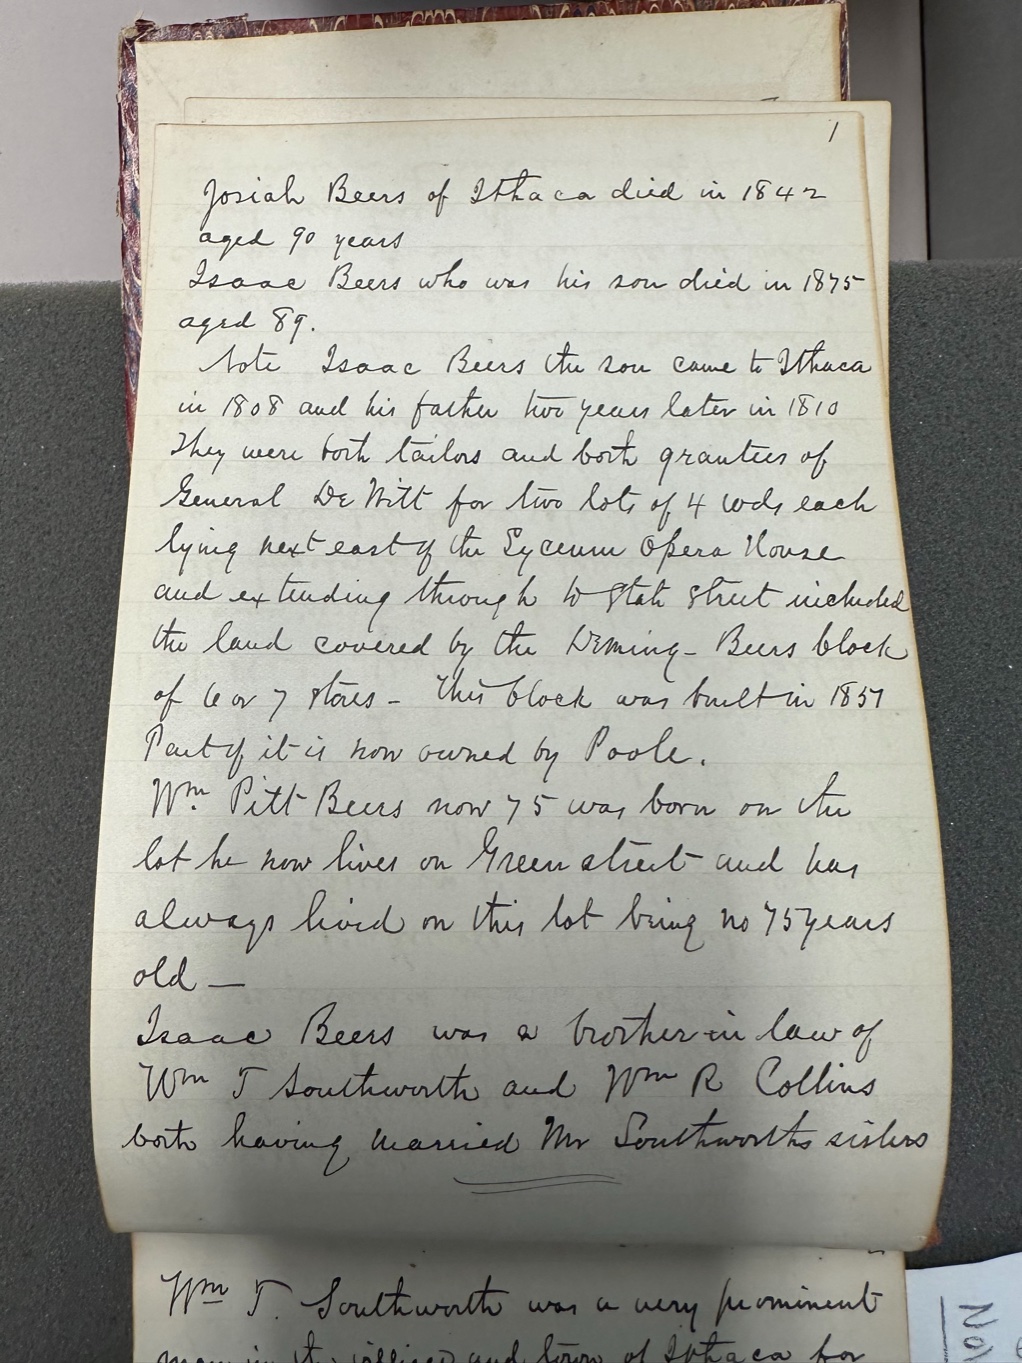 1
Josiah Beers of Ithaca died in 1842
aged 90 years
Isaac Beers who was his son died in 1875
aged 89.
Note Isaac Beers the son came to Ithaca
in 1808 and his father two years later in 1810
They were both tailors and both grantees of
General De Witt for two lots of 4 rods each
lying next east of the Lyceum Opera House
and extending through to State Street included
the land covered by the Deming - Beers block
of 6 or 7 stores - This block was built in 1851
Part of it is now owned by Poole.
Wm. Pitt Beers now 75 was born on the
lot he now lives on Green street and has
always lived on this lot being no 75 years
old —
Isaac Beers was a brother-in law of
Wm T Southworth and Wm R Collins
both having married Mr Southworths sisters
Wm T. Southworth was a very prominent
man in the village and town of Ithaca for